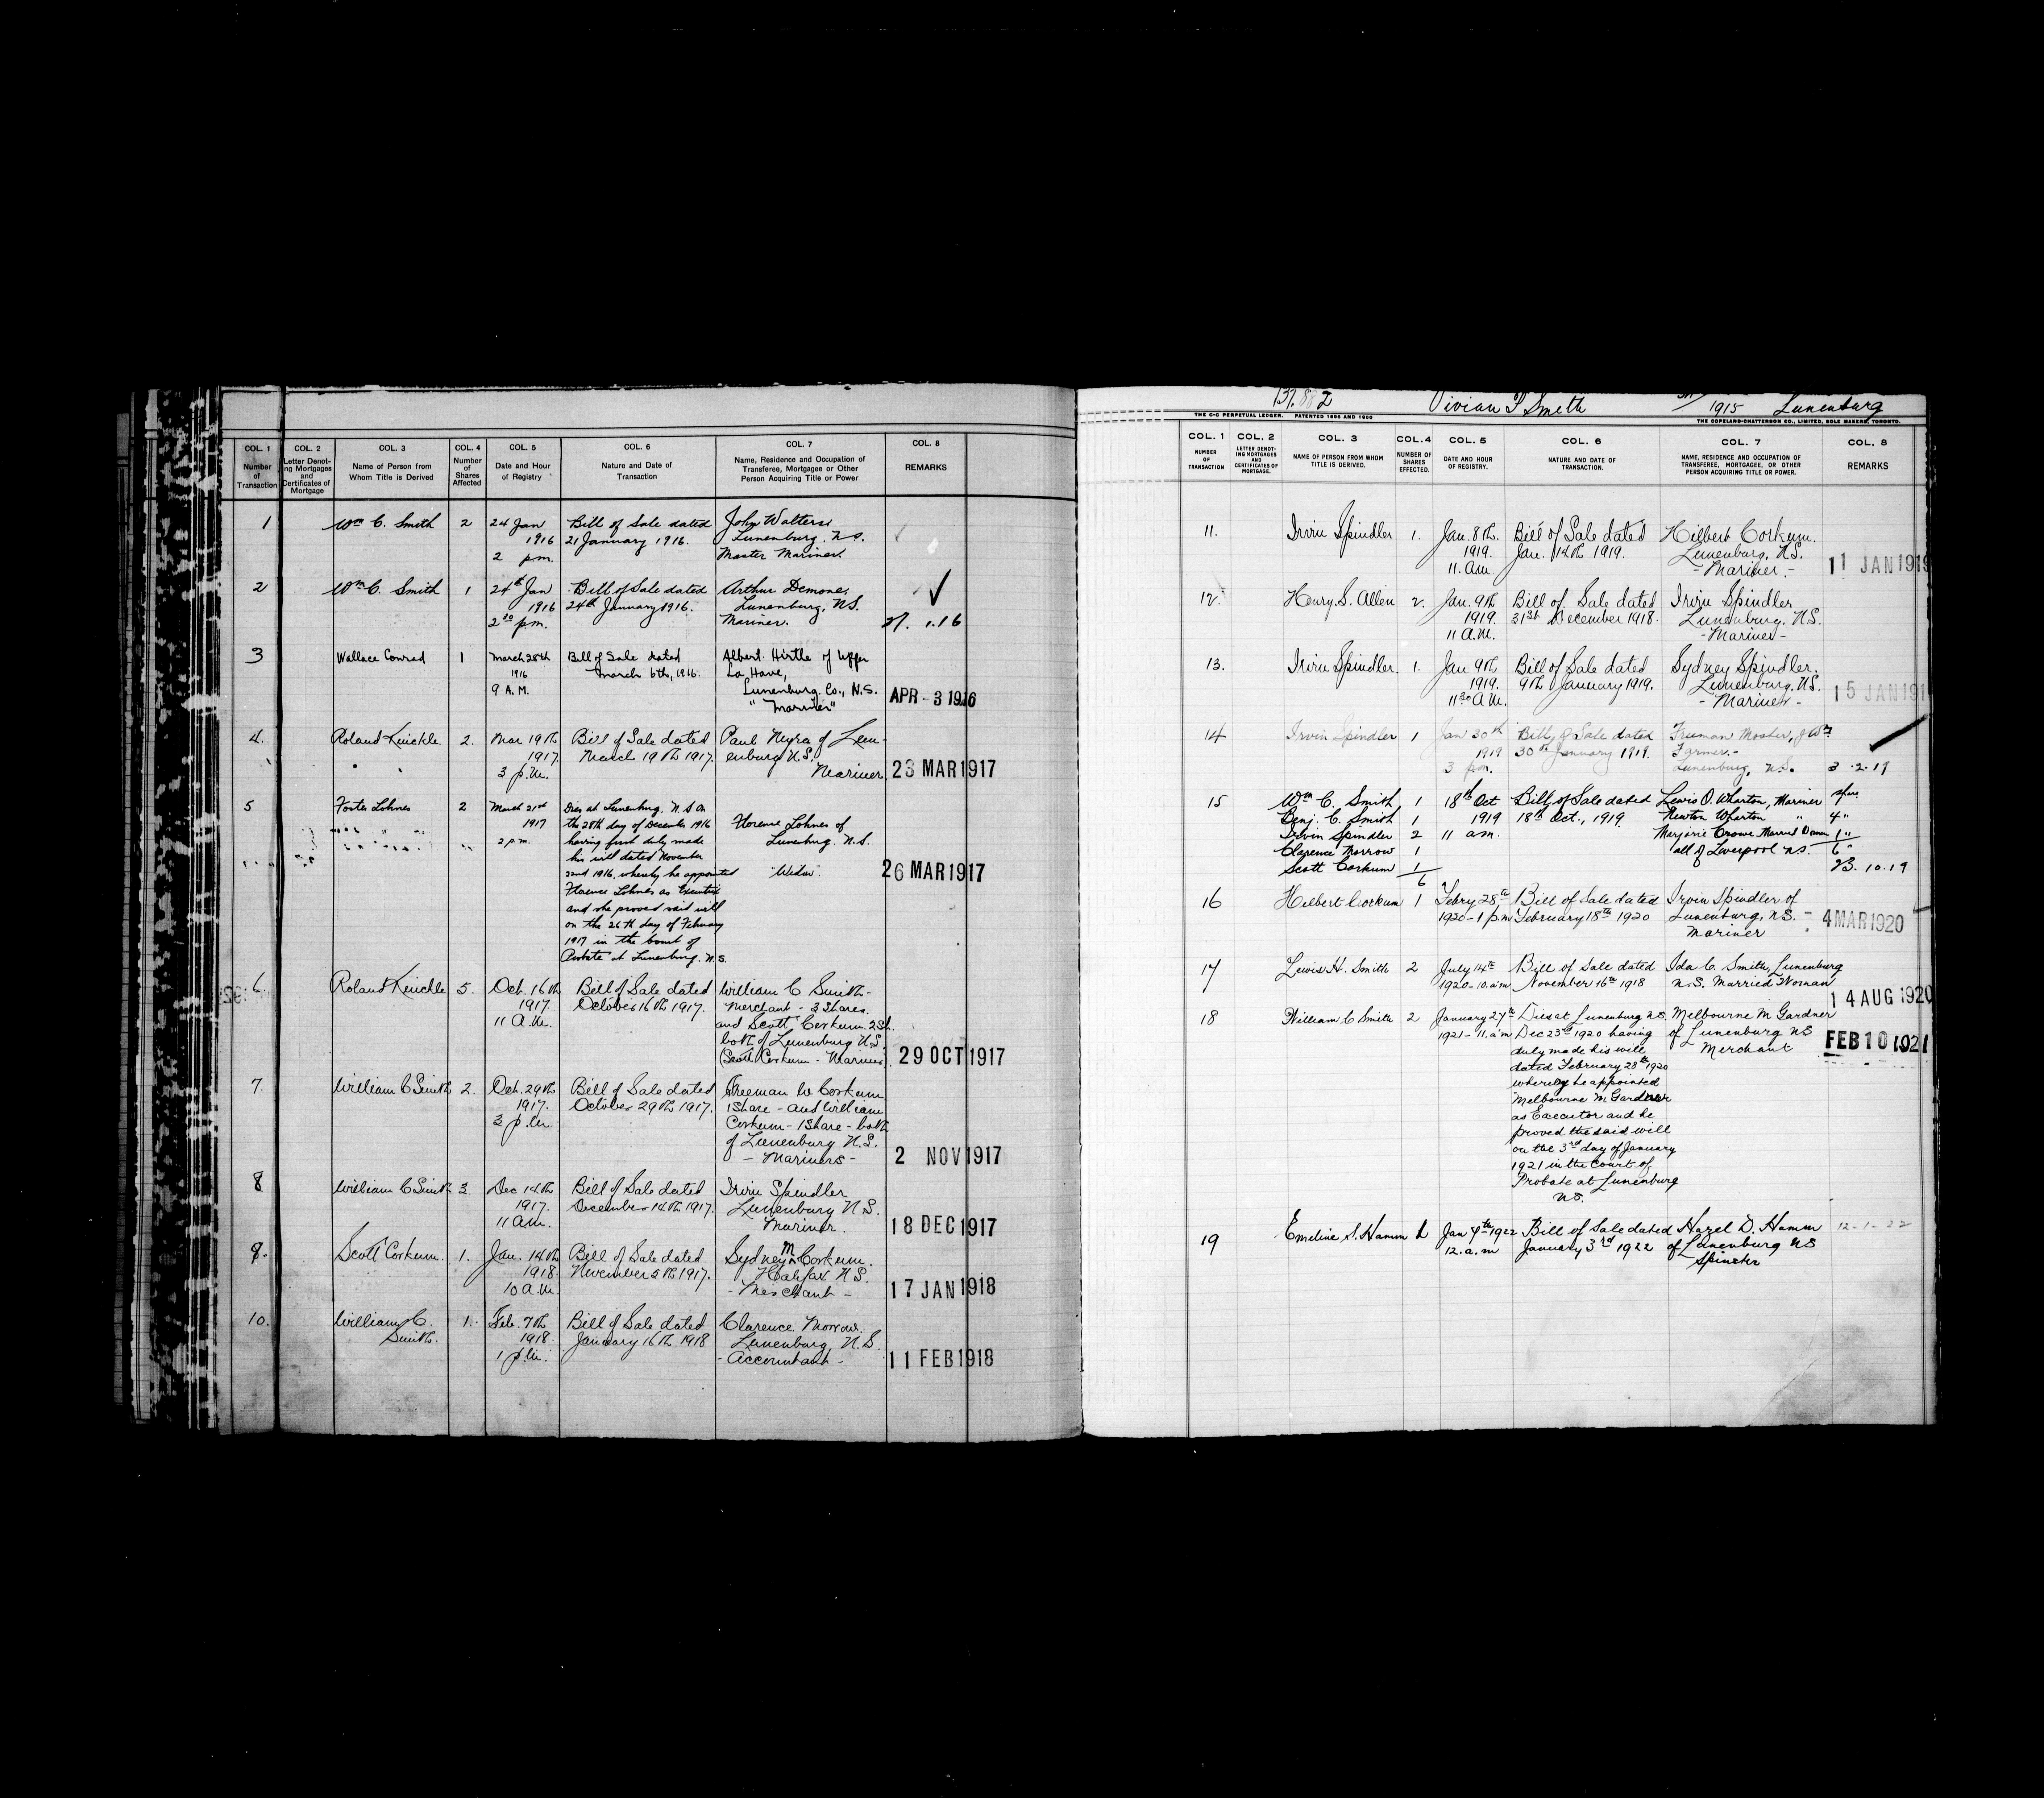 COL. 1 COL. 2 COL. 3 COL. 4 COL. 5 COL. 6 COL. 7 COL. 8
Number of Transaction
Letter Denoting Mortgages and Certificates of Mortgage
Name of Person from Whom Title is Derived
Number of Shares Affected
Date and Hour of Registry
Nature and Date of Transaction
Name, Residence and Occupation of Transferee, Mortgagee or Other Person Acquiring Title or Power
REMARKS
1 Wm C. Smith 2 24 Jan Bill of Sale dated John Walters
1916 21 January 1916. Lunenburg. N.S.
2 pm. Master Mariner
2 Wm C. Smith 1 24th Jan Bill of Sale dated Arthur Demone,
1916 24th January 1916. Lunenburg, N.S.
2 30 p.m. Mariner. 27. 1.16
3 Wallace Conrad 1 March 28th Bill of Sale dated Albert Hirtle of Upper
1916 March 6th, 1916. La Have,
9 A.M. Lunenburg Co., N.S. APR - 3 1916
"Mariner"
4. Roland Knickle. 2. Mar 19th Bill of Sale dated Paul Myra of Lun-
1917 March 19th 1917. enburg N.S.
3 p.m. Mariner 23 MAR 1917
5 Foster Lohnes 2 March 21st Dies at Lunenburg, N.S. on
1917 the 28th day of December 1916 Florence Lohnes of
2 p.m. having first duly made Lunenburg. N.S.
his will dated November
22nd 1916, whereby he appointed "Widow" 26 MAR 1917
Florence Lohnes as Executrix
and she proved said will
on the 26th day of February
1917 in the Court of
Probate at Lunenburg. N.S.
6. Roland Knickle 5. Oct. 16th Bill of Sale dated William C Smith-
1917. October 16th 1917. Merchant - 3 Shares
11 A.M. and Scott Corkum 2 Sh.
both of Lunenburg N.S.
(Scott Corkum - Mariner). 29 OCT 1917
7. William C Smith 2. Oct. 29th Bill of Sale dated Freeman W Corkum
1917. October 29th 1917. 1 Share - and William
3 p.m. Corkum - 1 Share - both
of Lunenburg N.S.
- Mariners - 2 NOV 1917
8 William C Smith 3. Dec 14th Bill of Sale dated Irvin Spindler
1917. December 14th 1917. Lunenburg N.S.
11 A.M. Mariner. 18 DEC 1917
9. Scott Corkum. 1. Jan. 14th Bill of Sale dated Sydney M Corkum.
1918 November 5th 1917. Halifax N.S.
10 A.M. - Merchant - 17 JAN 1918
10. William C. 1. Feb. 7th Bill of Sale dated Clarence Morrow.
Smith. 1918. January 16th 1918 Lunenburg, N.S.
1 p.m. - Accountant - 11 FEB 1918
137,882 Vivian P Smith 1915 Lunenburg
THE C-C PERPETUAL LEDGER. PATENTED 1896 AND 1900
THE COPELAND-CHATTERSON CO., LIMITED, SOLE MAKERS, TORONTO.
COL. 1 COL. 2 COL. 3 COL. 4 COL. 5 COL. 6 COL. 7 COL. 8
NUMBER OF TRANSACTION
LETTER DENOTING MORTGAGES AND CERTIFICATES OF MORTGAGE.
NAME OF PERSON FROM WHOM TITLE IS DERIVED.
NUMBER OF SHARES EFFECTED.
DATE AND HOUR OF REGISTRY.
NATURE AND DATE OF TRANSACTION.
NAME, RESIDENCE AND OCCUPATION OF TRANSFEREE, MORTGAGEE, OR OTHER PERSON ACQUIRING TITLE OR POWER.
REMARKS
11. Irvin Spindler 1. Jan. 8th. Bill of Sale dated Hilbert Corkum.
1919. Jan. 14th 1919. Lunenburg, N.S.
11. A.M. - Mariner. - 11 JAN 1919
12. Henry. S. Allen 2. Jan. 9th Bill of Sale dated Irvin Spindler
1919. 31st December 1918. Lunenburg. N.S.
11 A.M. - Mariner -
13. Irvin Spindler. 1. Jan 9th Bill of Sale dated Sydney Spindler.
1919. 9th January 1919. Lunenburg, N.S.
11 30 A.M. - Mariner - 15 JAN 191
14 Irvin Spindler 1 Jan 30th Bill of Sale dated Freeman Mosher, of Wm
1919 30th January 1919. Farmer.-
3 p.m. Lunenburg, N.S. 3 . 2 . 19
15 Wm C. Smith 1 18th Oct Bill of Sale dated Lewis O. Wharton, Mariner
Benj. C. Smith 1 1919 18th Oct., 1919. Newton Wharton " 4 "
Irvin Spindler 2 11 a.m. Marjorie Crowe Married Woman 1 "
Clarence Morrow 1 all of Liverpool N.S. 6 "
Scott Corkum 1 23. 10. 19
6
16 Hilbert Corkum 1 Febry 28th Bill of Sale dated Irvin Spindler of
1920 - 1 pm February 18th 1920 Lunenburg, N.S. 4 MAR 1920
Mariner
17 Lewis H. Smith 2 July 14th Bill of Sale dated Ida C. Smith, Lunenburg
1920 - 10. a.m November 16th 1918 N.S. Married Woman
14 AUG 1920
18 William C Smith 2 January 27th Dies at Lunenburg N.S. Melbourne M Gardner
1921 - 11. a.m Dec 23rd 1920 having of Lunenburg NS FEB 10 1921
duly made his will Merchant
dated February 28th 1920
whereby he appointed
Melbourne M Gardner
as Executor and he
proved the said will
on the 3rd day of January
1921 in the Court of
Probate at Lunenburg
N.S.
19 Emeline S. Hamm 2 Jan 4th 1922 Bill of Sale dated Hazel D. Hamm 12 - 1 - 22
12. a.m January 3rd 1922 of Lunenburg NS
Spinster